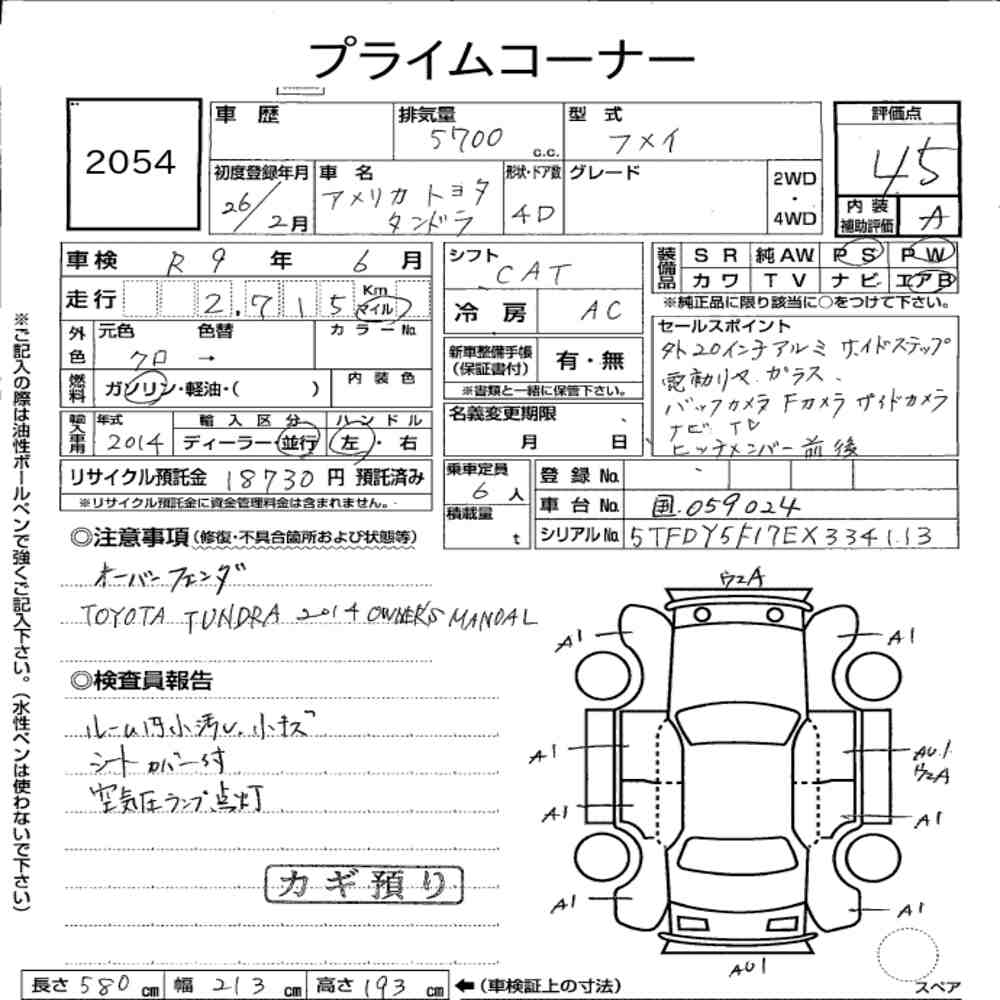 プライムコーナー
2054
車歴
排気量 5700 c.c.
型式 フメイ
評価点 4.5
初度登録年月 26/2月
車名 アメリカ トヨタ タンドラ
形状・ドア数 4D
グレード
2WD・4WD
内装補助評価 A
車検 R 9 年 6 月
走行 2.715 Km マイル
外色 元色 クロ 色替 → カラーNo.
燃料 ガソリン・軽油・( )
内装色
輸入車用 年式 2014 輸入区分 ディーラー・並行 ハンドル 左・右
リサイクル預託金 18730 円 預託済み
※リサイクル預託金に資金管理料金は含まれません。
シフト CAT
冷房 AC
新車整備手帳(保証書付) 有・無
※書類と一緒に保管下さい。
名義変更期限
月 日
乗車定員 6 人
積載量 t
装備品 SR 純AW PS PW
カワ TV ナビ エアB
※純正品に限り該当に○をつけて下さい。
セールスポイント
外20インチアルミ サイドステップ
電動リヤガラス、
バックカメラ Fカメラ サイドカメラ
ナビ TV
ヒッチメンバー前後
登録No.
車台No. 国.059024
シリアルNo. 5TFDY5F17EX334113
◎注意事項(修復・不具合箇所および状態等)
オーバーフェンダ
TOYOTA TUNDRA 2014 OWNER'S MANUAL
◎検査員報告
ルーム内小汚し、小キズ
シートカバー付
空気圧ランプ点灯
カギ預り
ウ2A
A1
A1
A1
AU1
ウ2A
A1
A1
A1
A1
AU1
スペア
長さ 580 cm 幅 213 cm 高さ 193 cm ←(車検証上の寸法)
※ご記入の際は油性ボールペンで強くご記入下さい。(水性ペンは使わないで下さい)